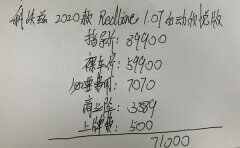 科沃兹 2020款 Redline 1.0T 自动欣悦版
指导价: 89900
裸车价: 59900
购置费用: 7070
商业险: 3589
上牌费: 500
71000